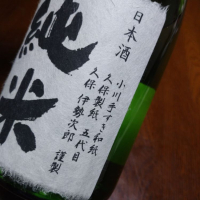 日本酒
純米
小川手すき和紙
久保製紙 五代目
久保 伊勢次郎 謹製